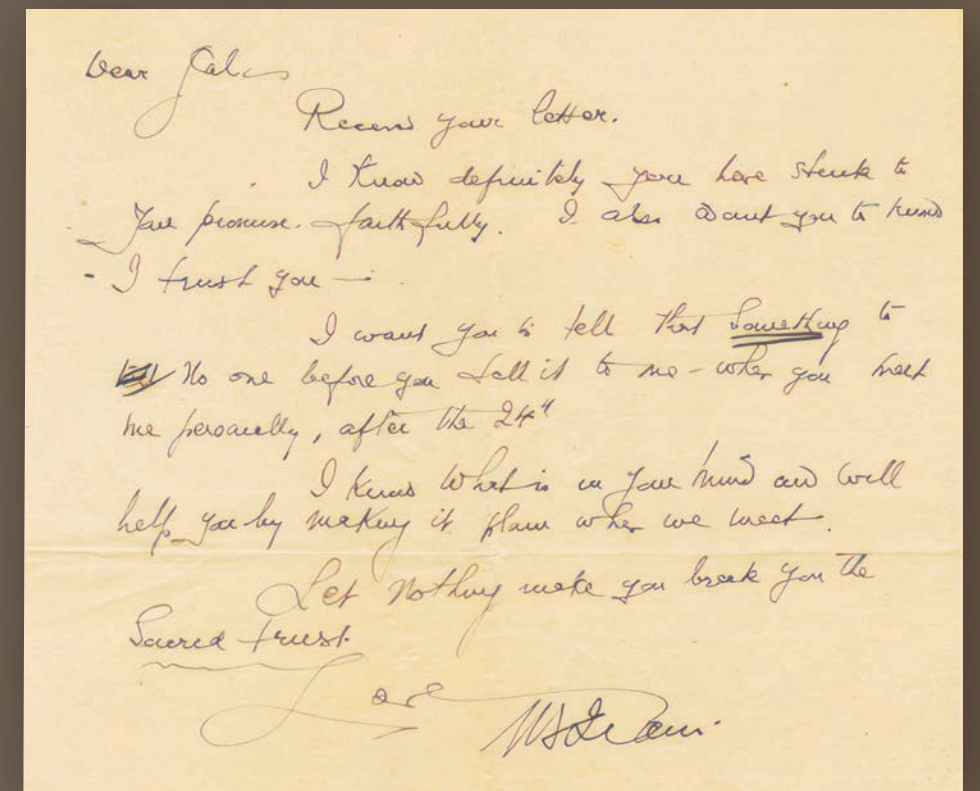 Dear
Received your letter.
I know definitely you have stuck to
your promise. faithfully. I also want you to know
- I trust you —
I want you to tell that Something to
No one before you tell it to me - when you meet
me personally, after the 24th
I know what is in your mind and will
help you by making it plain when we meet.
Let nothing make you break you the
Sacred Trust.
Love
M S Irani.